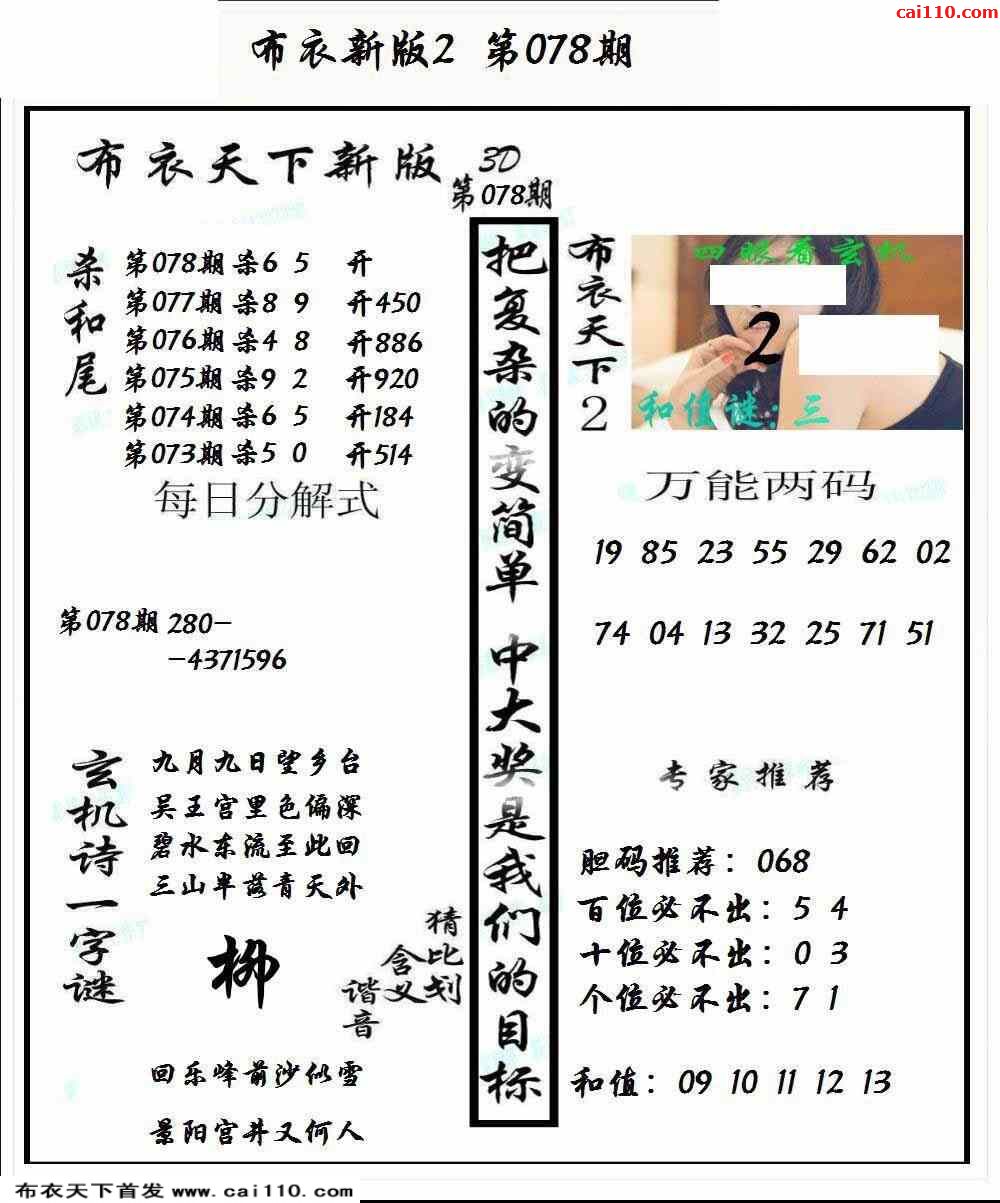 cai110.com
布衣新版2 第078期
布衣天下新版
3D
第078期
杀和尾
第078期 杀6 5 开
第077期 杀8 9 开450
第076期 杀4 8 开886
第075期 杀9 2 开920
第074期 杀6 5 开184
第073期 杀5 0 开514
每日分解式
第078期 280-
-4371596
玄机诗一字谜
九月九日望乡台
吴王宫里色偏深
碧水东流至此回
三山半落青天外
柳
猜比划
含义
谐音
回乐峰前沙似雪
景阳宫井又何人
把复杂的变简单 中大奖是我们的目标
布衣天下2
四眼看玄机
2
和值谜:三
万能两码
19 85 23 55 29 62 02
74 04 13 32 25 71 51
专家推荐
胆码推荐：068
百位必不出：5 4
十位必不出：0 3
个位必不出：7 1
和值：09 10 11 12 13
布衣天下首发 www.cai110.com